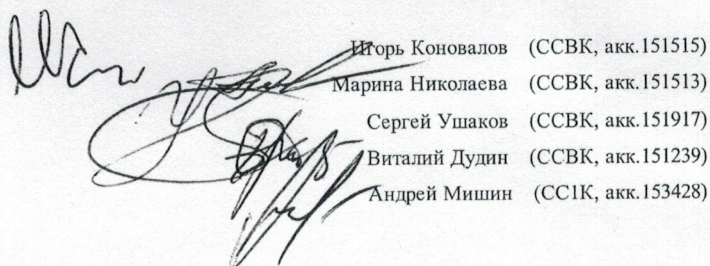 Игорь Коновалов (ССВК, акк.151515)
Марина Николаева (ССВК, акк.151513)
Сергей Ушаков (ССВК, акк.151917)
Виталий Дудин (ССВК, акк.151239)
Андрей Мишин (СС1К, акк.153428)